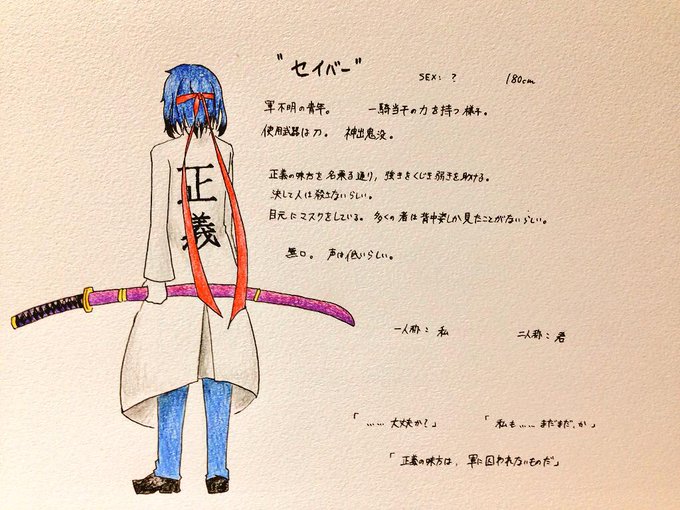 "セイバー"
SEX: ?
180cm
軍不明の青年。 一騎当千の力を持つ様子。
使用武器は刀。 神出鬼没。
正義の味方を名乗る通り、強きをくじき弱きを助ける。
決して人は殺さないらしい。
目元にマスクをしている。 多くの者は背中姿しか見たことがないらしい。
無口。 声は低いらしい。
正義
一人称：私
二人称：君
「……大丈夫か?」
「私も……まだまだ、か」
「正義の味方は、軍に囚われないものだ」